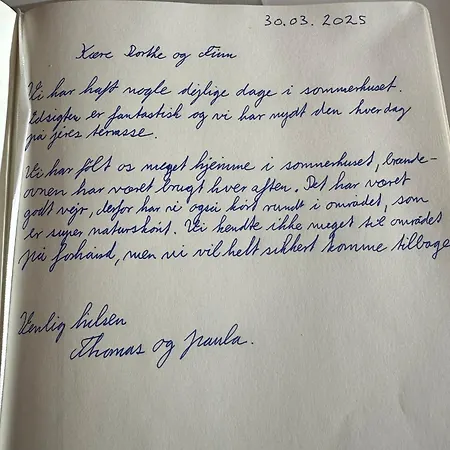 30.03.2025
Kære Dorthe og Finn
Vi har haft nogle dejlige dage i sommerhuset.
Udsigten er fantastisk og vi har nydt den hverdag
på jeres terrasse.
Vi har følt os meget hjemme i sommerhuset, brænde-
ovnen har været brugt hver aften. Det har været
godt vejr, derfor har vi også kørt rundt i området, som
er super naturskønt. Vi kendte ikke meget til området
på forhånd, men vi vil helt sikkert komme tilbage
Venlig hilsen
Thomas og Paula.